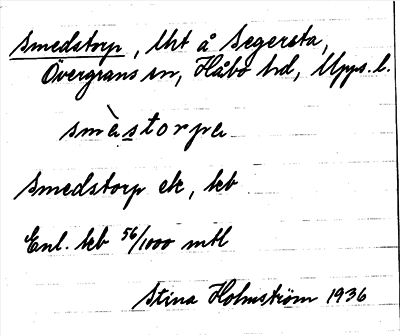 Smedstorp, lht å Segersta,
Övergrans sn, Håbo hd, Upps. l.
smàstorpa
Smedstorp ek, kb
Enl. kb 56/1000 mtl
Stina Holmström 1936